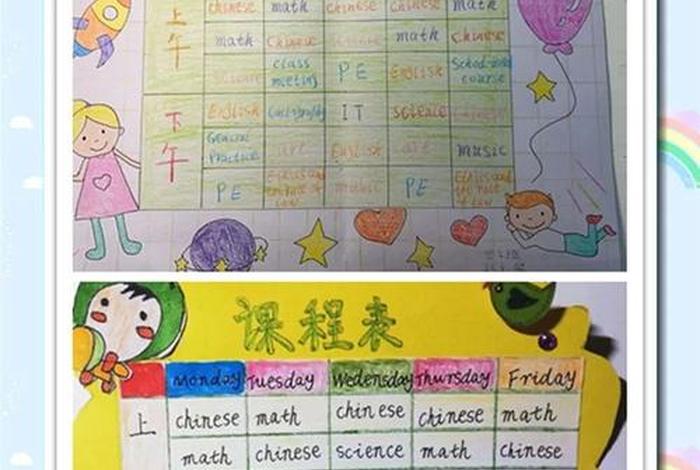 上午 chinese math chinese chinese math
math chinese science math chinese
science class meeting PE English School-based course
下午 English Calligraphy IT science chinese
General Practice art English art music
PE music PE
课程表
Monday Tuesday Wedensday Thursday Friday
上 chinese math chinese chinese math
math chinese science math chinese